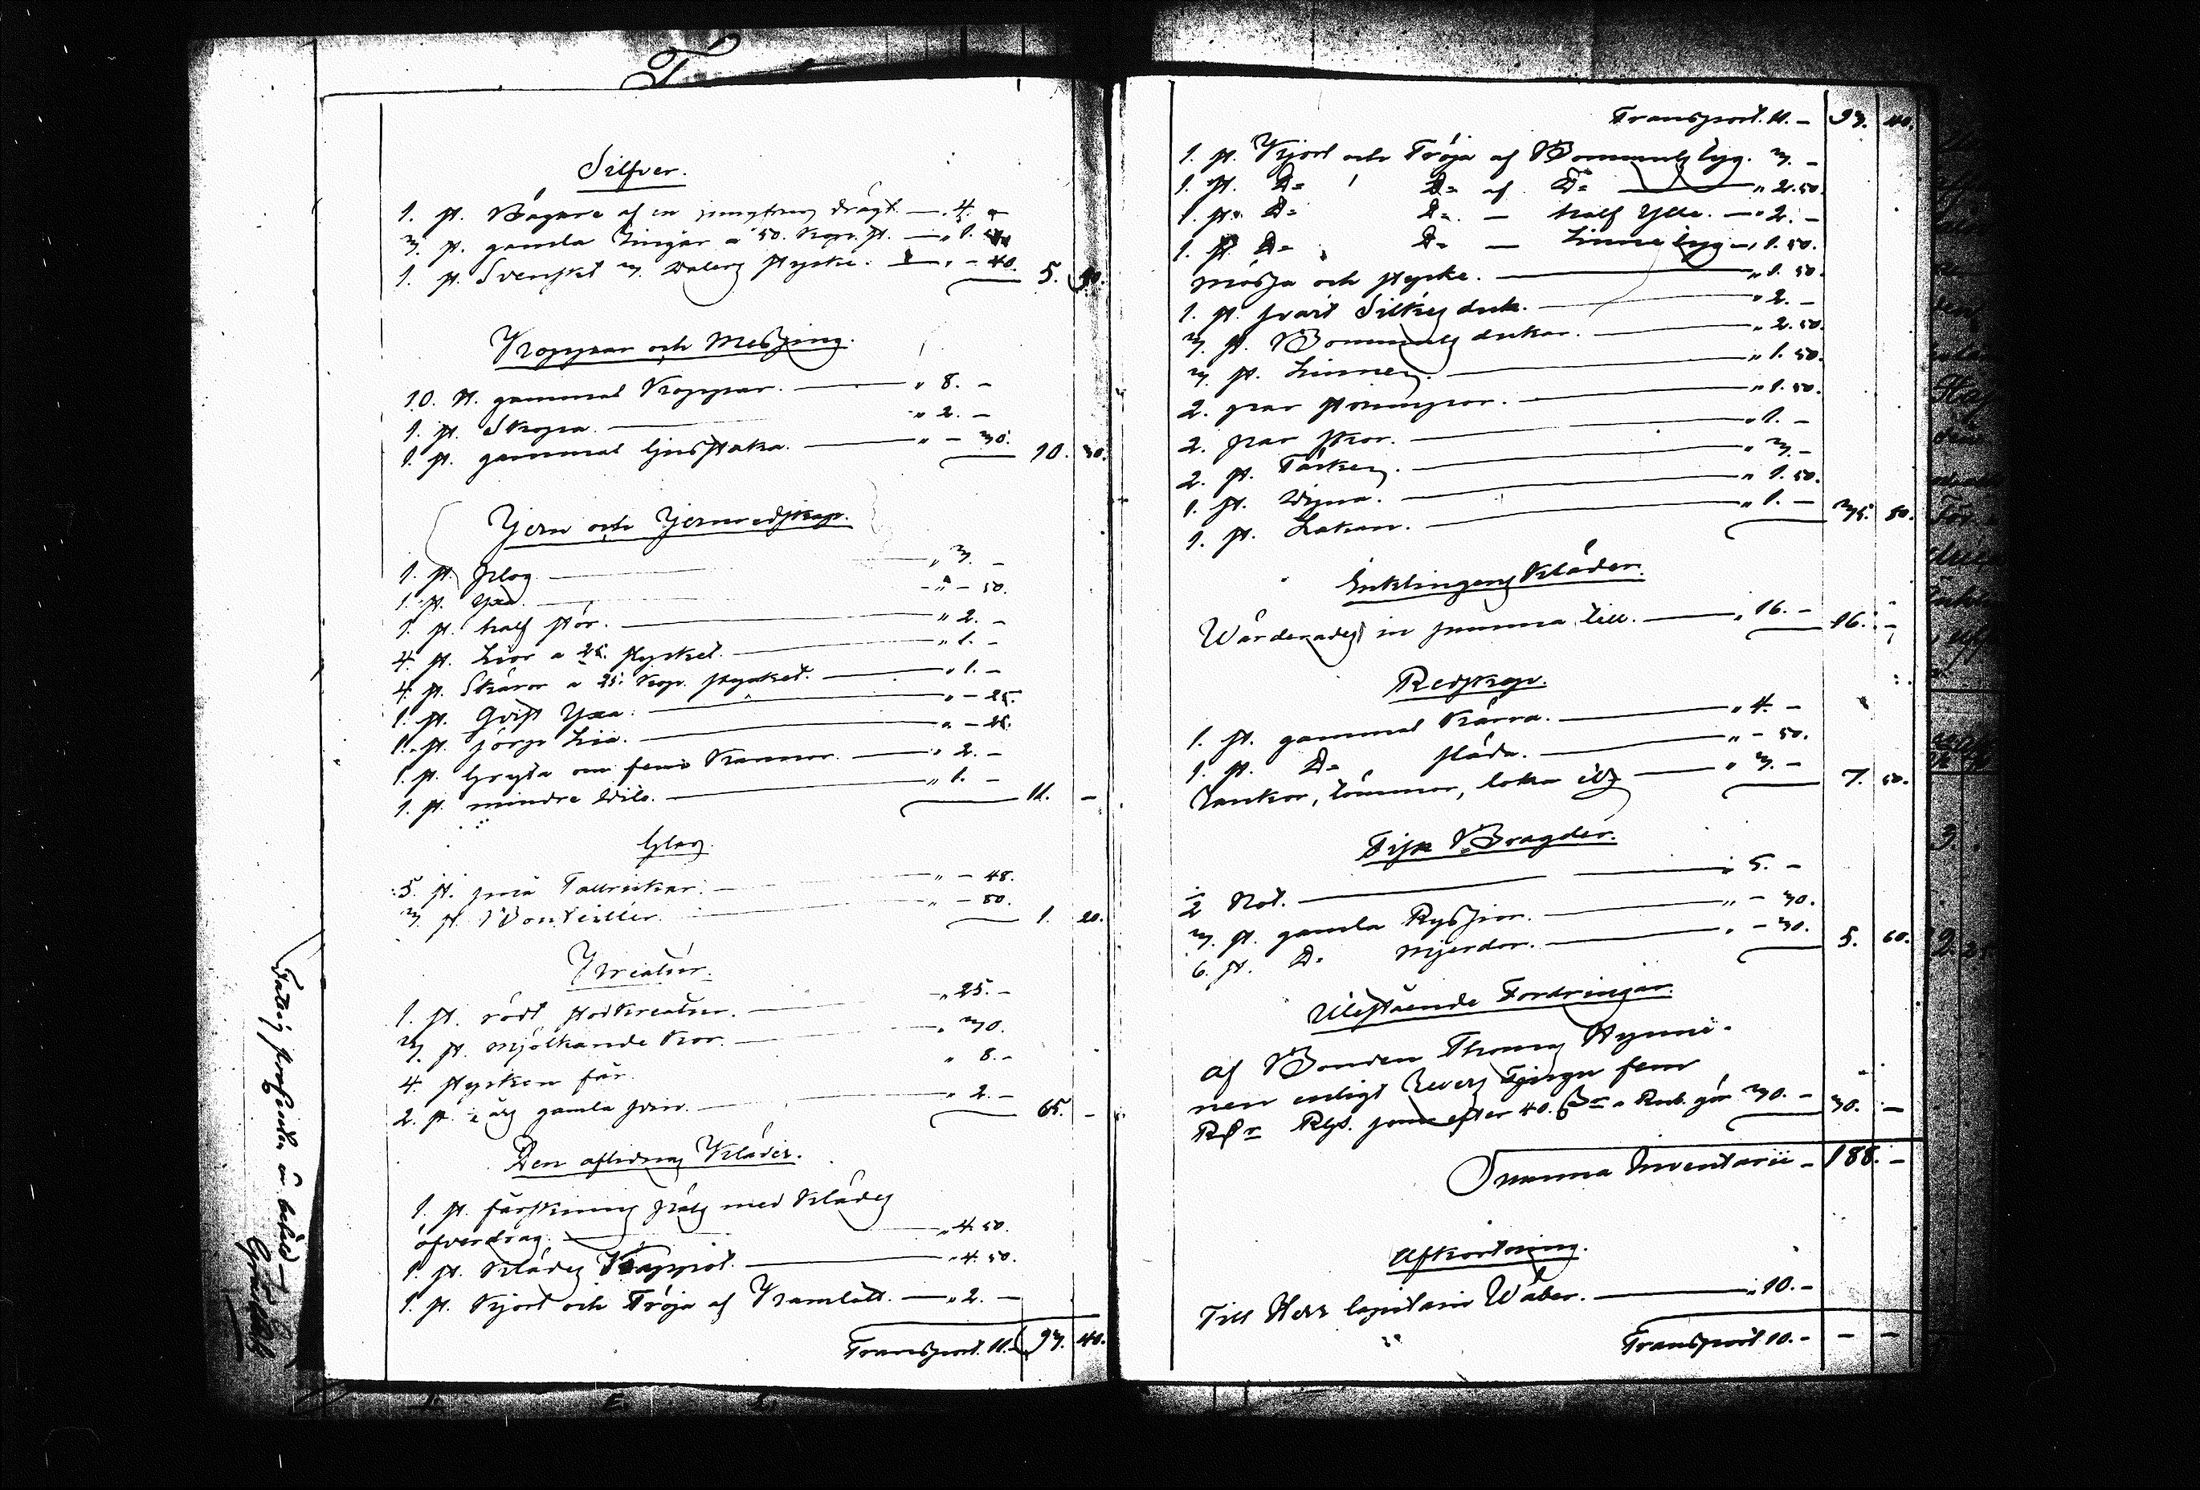 Silfver.
1. st. Bägare af en jungfrus drägt. — " 4. –
3. st. gamla Ringar a 50. Kop. st. — " 1. 50.
1. st. Svenskt 3. Dalers stycke. — " – 40. 5. 90.
Koppar och Messing.
10. st. gammal Koppar. — " 8. –
1. st. Skopa. — " 2. –
1. st. gammal ljusstaka. — " – 30. 10. 30.
Jern och Jernredskap.
1. st. plog — " 3. –
1. st. Yxa. — " – 50.
1. st. half stör. — " 2. –
4. st. Liar a 25. stycket. — " 1. –
4. st. Skäror a 25. Kop. stycket. — " 1. –
1. st. Qvist Yxa. — " – 25.
1. st. Lia. — " – 25.
1. st. Gryta om fem Kannor. — " 2. –
1. st. mindre dito. — " 1. – 11. –
Glas.
5. st. små Tallrickar. — " – 48.
3. st. Bouteiller. — " – 80. 1. 20.
Kreatur.
1. st. rödt stokreatur. — " 25. –
3. st. mjölkande Kor. — " 30.
4. stycken får. " 8. –
2. st. ½ års gamla svin. — " 2. – 65. –
Den aflidnas Kläder.
1. st. fårskinns päls med Klädes
öfverdrag. — " 4. 50.
1. st. Klädes Kappot. — " 4. 50.
1. st. Kjort och Tröja af Kamlått. — " 2. –
Transport. 11. – 93. 40.
Transport. 11. – 93. 40.
1. st. Kjort och Tröja af Bomulls tyg. 3. –
1. st. D:o D:o af D:o — " 2. 50.
1. st. D:o D:o — half Ylle. — " 2. –
1. st. D:o D:o — Linne tyg — " 1. 50.
mössa och stycke. — " 1. 50.
1. st. svart Silkes duk. — " 2. –
3. st. Bomulls dukar. — " 2. 50.
3. st. Linnen. — " 1. 50.
2. par strumpor. — " 1. 50.
2. par skor. — " 1. –
2. st. Täcken. — " 3. –
1. st. Dyna. — " 1. 50.
1. st. Lakan. — " 1. – 35. 50.
Enklingens Kläder.
Värderades in summa till. — " 16. – 16. –
Redskap.
1. st. gammal Kärra. — " 4. –
1. st. D:o släda. — " – 50.
Rankor, tömmar, loka — " 3. – 7. 50.
Fisk Bragder.
½ Not. — " 5. –
3. st. gamla Ryssjor. — " – 30.
6. st. D:o Mjerdor. — " – 30. 5. 60.
Utestående Fordringar.
af Bonden Thomas
nen enligt Revers Tjugu fem
Rbr Rgs. som efter 40. a Rub. gör 30. – 30. –
Summa Inventarii – 188. –
Afkortning.
Till Herr Capitain Wåber. — " 10. –
Transport 10. – – –